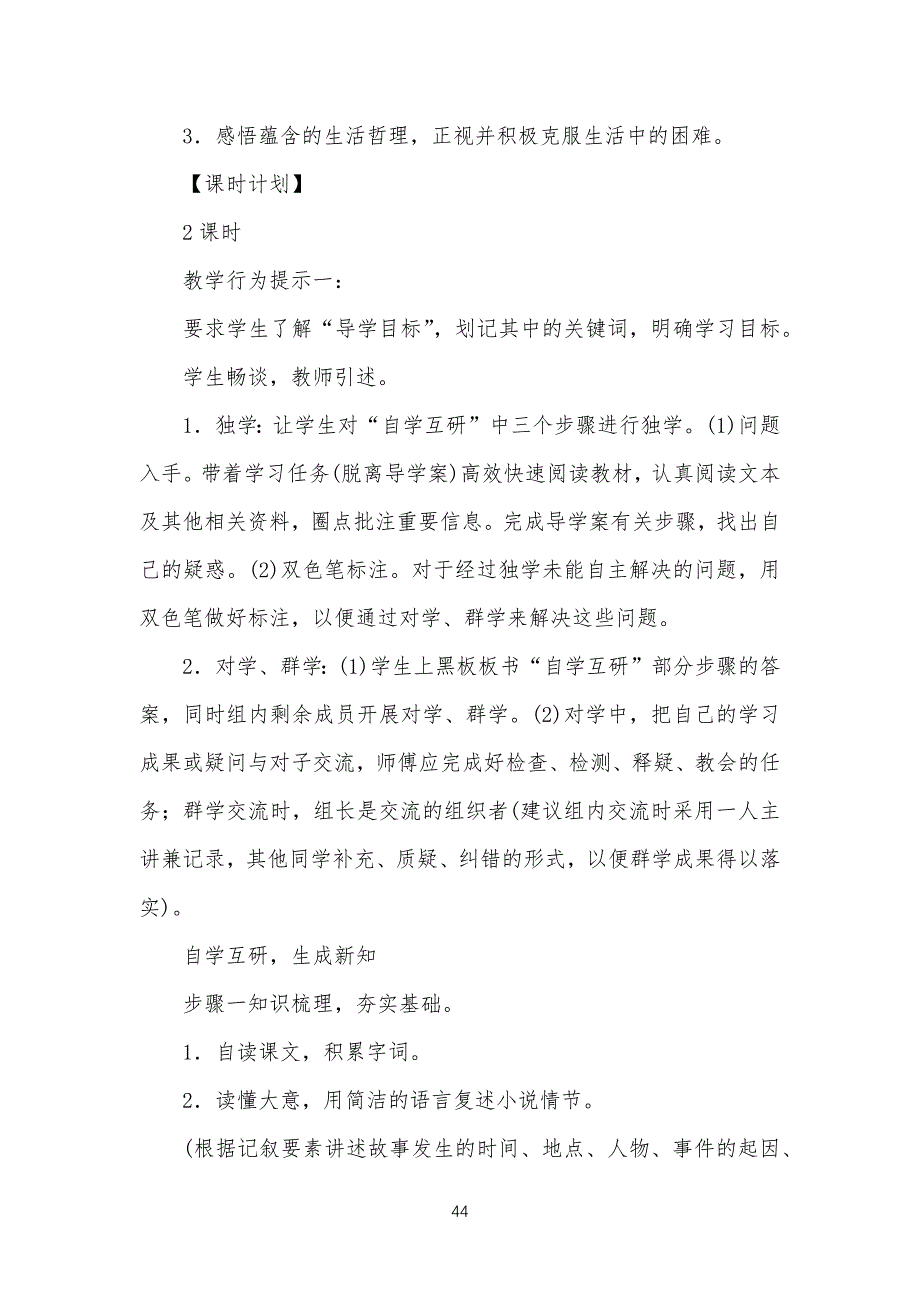 3．感悟蕴含的生活哲理，正视并积极克服生活中的困难。
【课时计划】
2 课时
教学行为提示一：
要求学生了解“导学目标”，划记其中的关键词，明确学习目标。
学生畅谈，教师引述。
1．独学：让学生对“自学互研”中三个步骤进行独学。(1)问题
入手。带着学习任务(脱离导学案)高效快速阅读教材，认真阅读文本
及其他相关资料，圈点批注重要信息。完成导学案有关步骤，找出自
己的疑惑。(2)双色笔标注。对于经过独学未能自主解决的问题，用
双色笔做好标注，以便通过对学、群学来解决这些问题。
2．对学、群学：(1)学生上黑板板书“自学互研”部分步骤的答
案，同时组内剩余成员开展对学、群学。(2)对学中，把自己的学习
成果或疑问与对子交流，师傅应完成好检查、检测、释疑、教会的任
务；群学交流时，组长是交流的组织者(建议组内交流时采用一人主
讲兼记录，其他同学补充、质疑、纠错的形式，以便群学成果得以落
实)。
自学互研，生成新知
步骤一知识梳理，夯实基础。
1．自读课文，积累字词。
2．读懂大意，用简洁的语言复述小说情节。
(根据记叙要素讲述故事发生的时间、地点、人物、事件的起因、
44